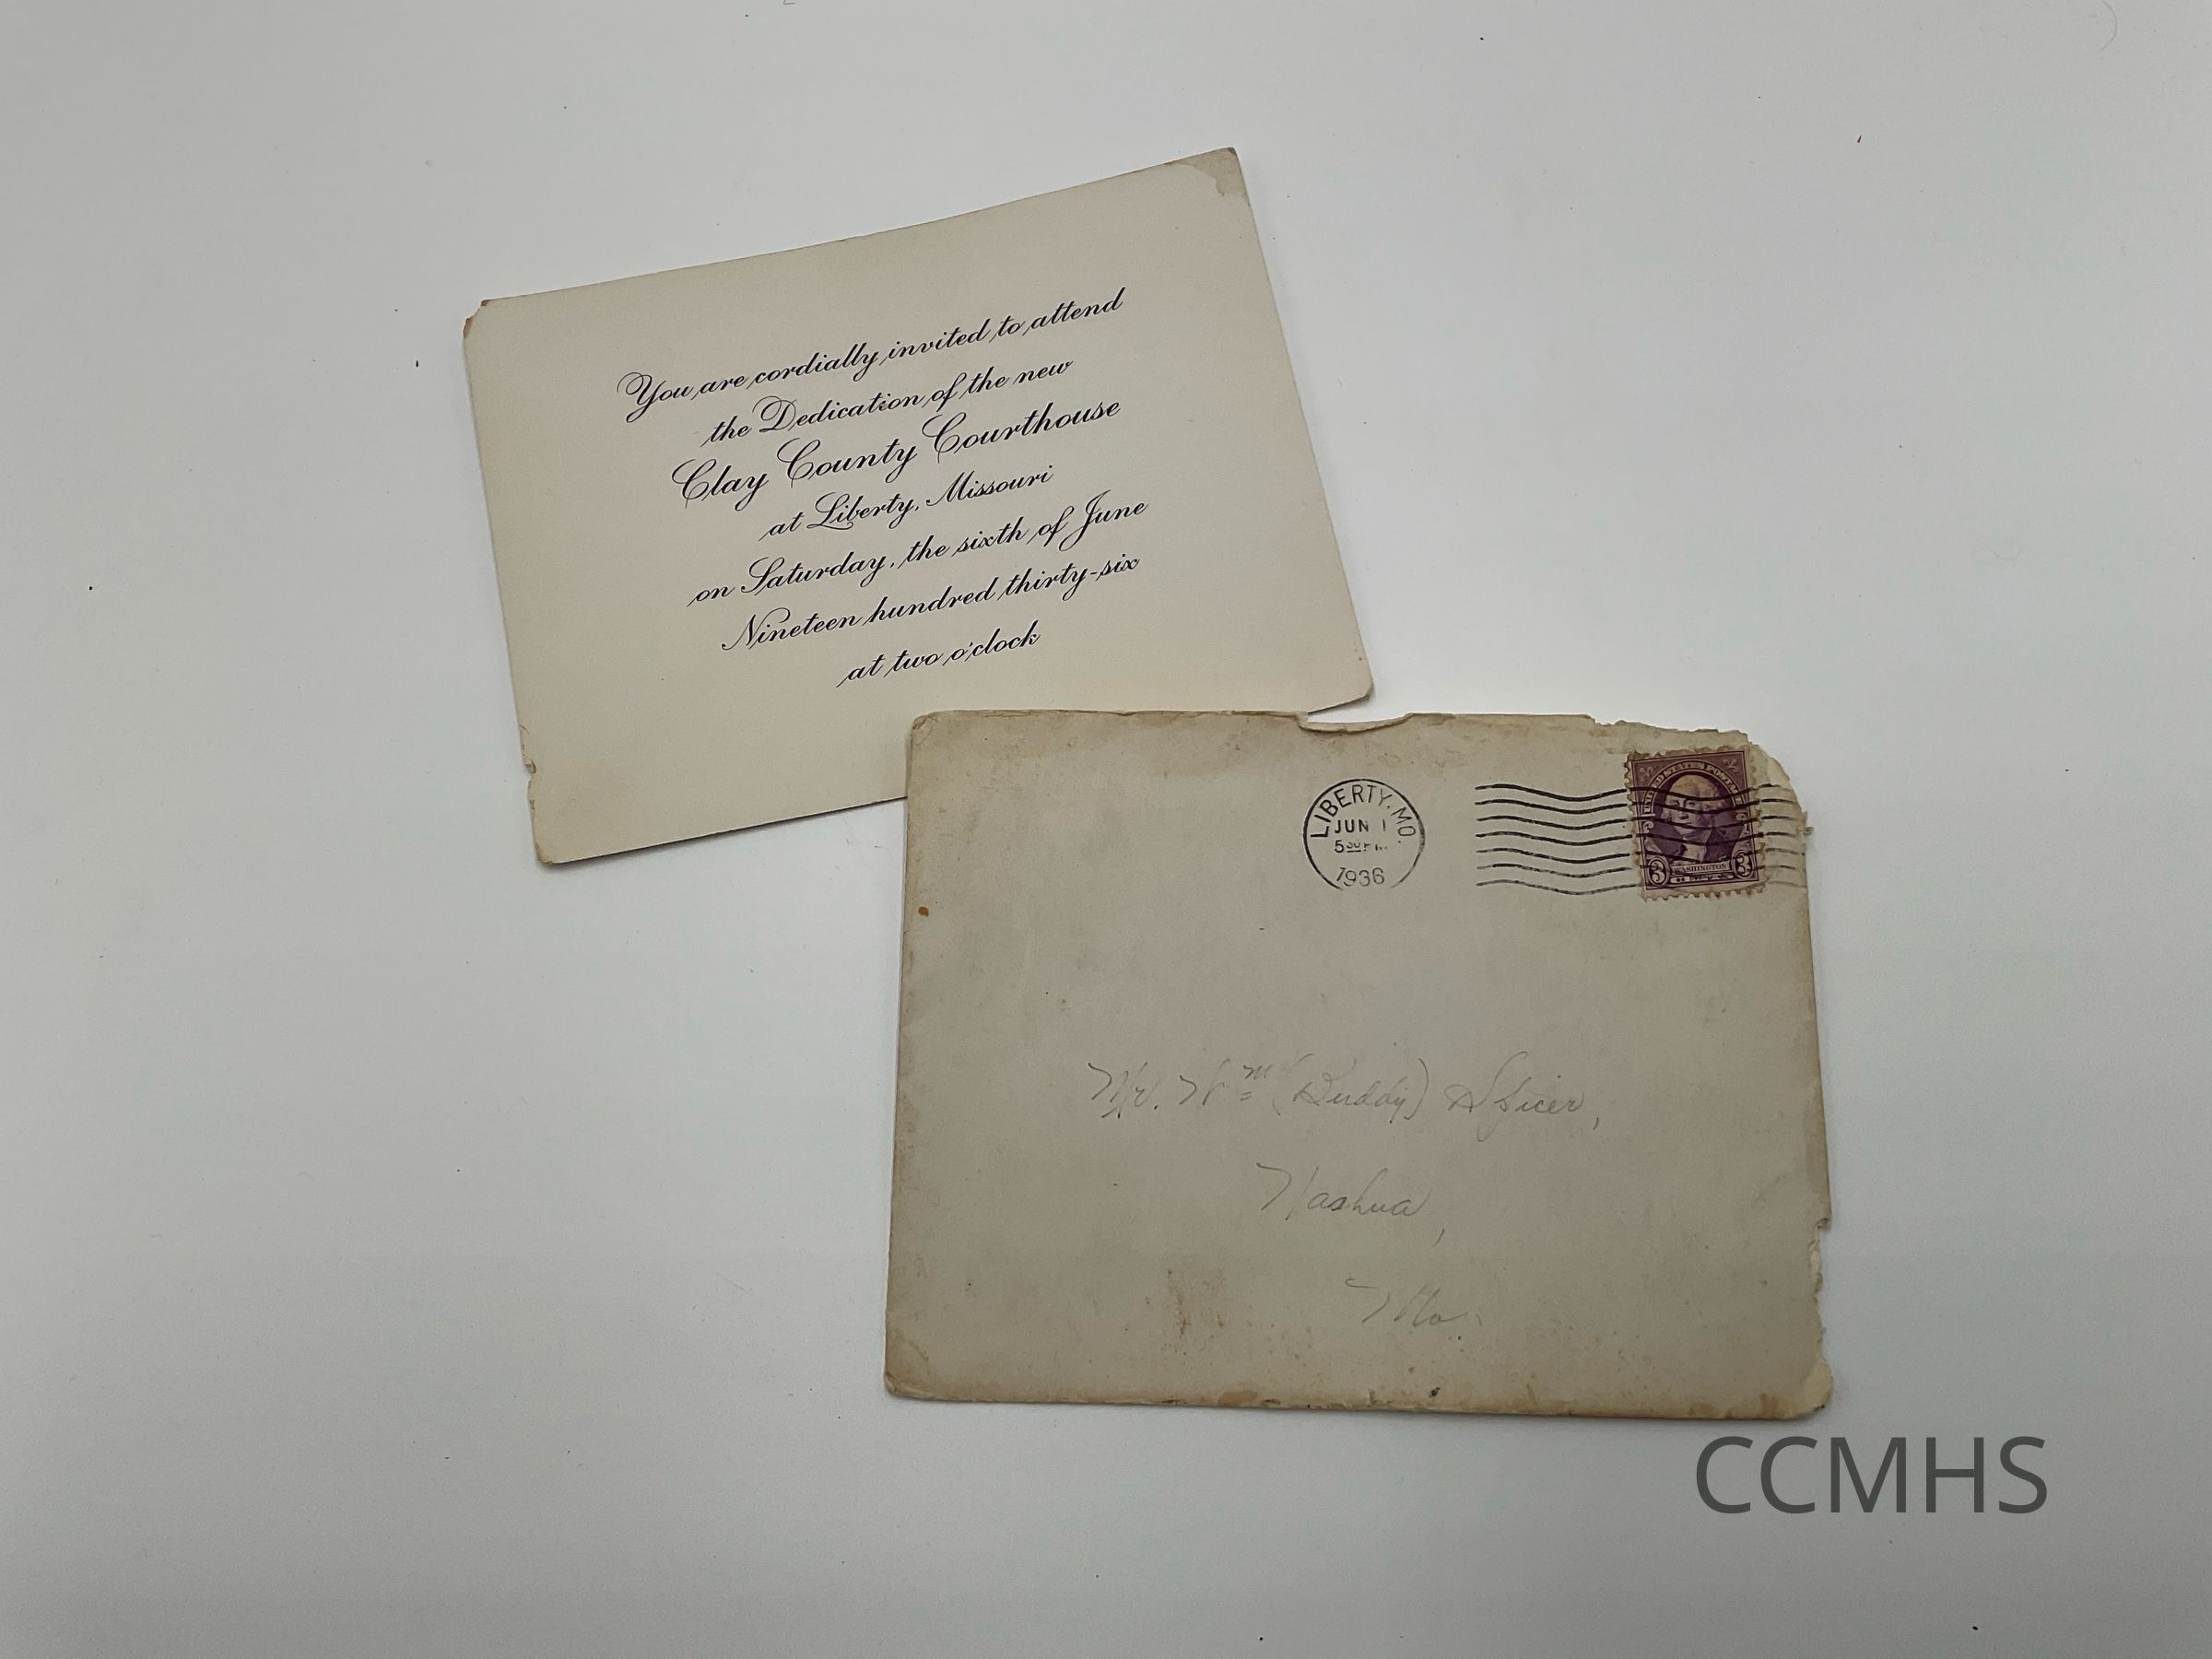 You are cordially invited to attend
the Dedication of the new
Clay County Courthouse
at Liberty, Missouri
on Saturday, the sixth of June
Nineteen hundred thirty-six
at two o'clock
LIBERTY, MO.
JUN 1
5 30 PM
1936
UNITED STATES POSTAGE
3 WASHINGTON 3
Mr. Wm (Buddy) Spicer,
Nashua,
Mo.
CCMHS